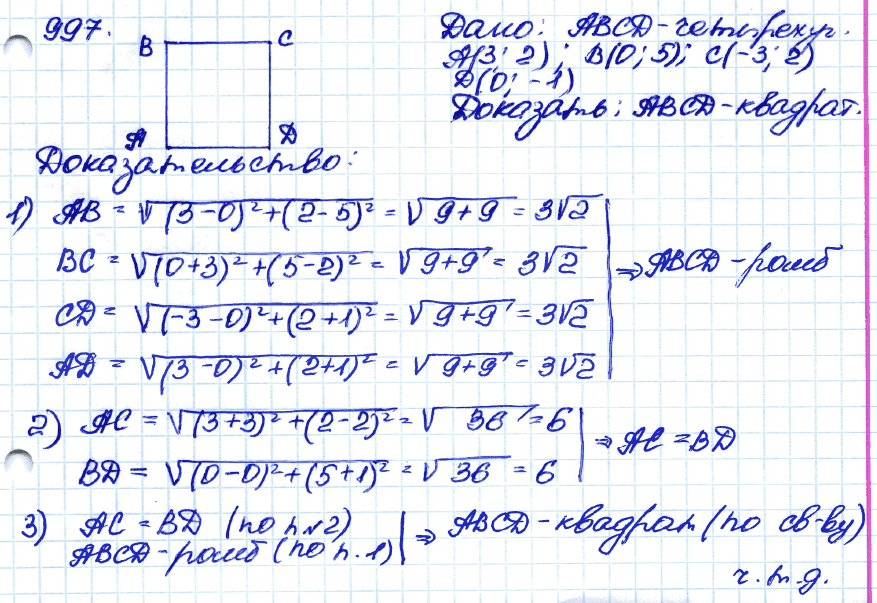 997.
B C
A D
Дано: ABCD-четырехуг.
A(3; 2); B(0; 5); C(-3; 2)
D(0; -1)
Доказать: ABCD-квадрат.
Доказательство:
1) AB = √(3-0)²+(2-5)² = √9+9 = 3√2
BC = √(0+3)²+(5-2)² = √9+9 = 3√2
CD = √(-3-0)²+(2+1)² = √9+9 = 3√2
AD = √(3-0)²+(2+1)² = √9+9 = 3√2
⇒ ABCD-ромб
2) AC = √(3+3)²+(2-2)² = √36 = 6
BD = √(0-0)²+(5+1)² = √36 = 6
⇒ AC = BD
3) AC = BD (по п.2)
ABCD-ромб (по п.1)
⇒ ABCD-квадрат (по св-ву)
ч.т.д.